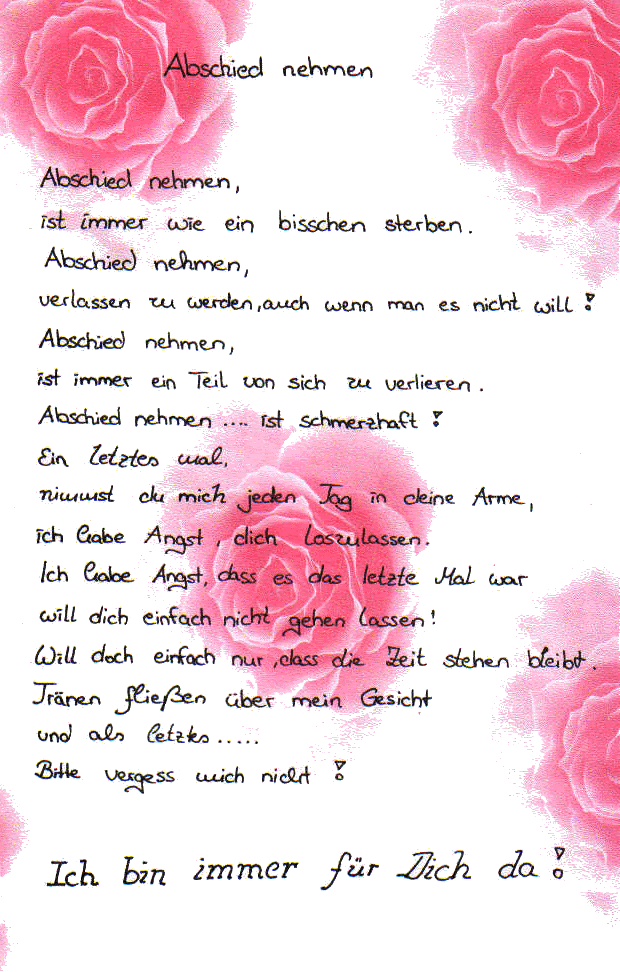 Abschied nehmen
Abschied nehmen,
ist immer wie ein bisschen sterben.
Abschied nehmen,
verlassen zu werden, auch wenn man es nicht will!
Abschied nehmen,
ist immer ein Teil von sich zu verlieren.
Abschied nehmen .... ist schmerzhaft!
Ein letztes mal,
nimmst du mich jeden Tag in deine Arme,
ich habe Angst, dich loszulassen.
Ich habe Angst, dass es das letzte Mal war
will dich einfach nicht gehen lassen!
Will doch einfach nur, dass die Zeit stehen bleibt.
Tränen fließen über mein Gesicht
und als letztes .....
Bitte vergess mich nicht!
Ich bin immer für Dich da!